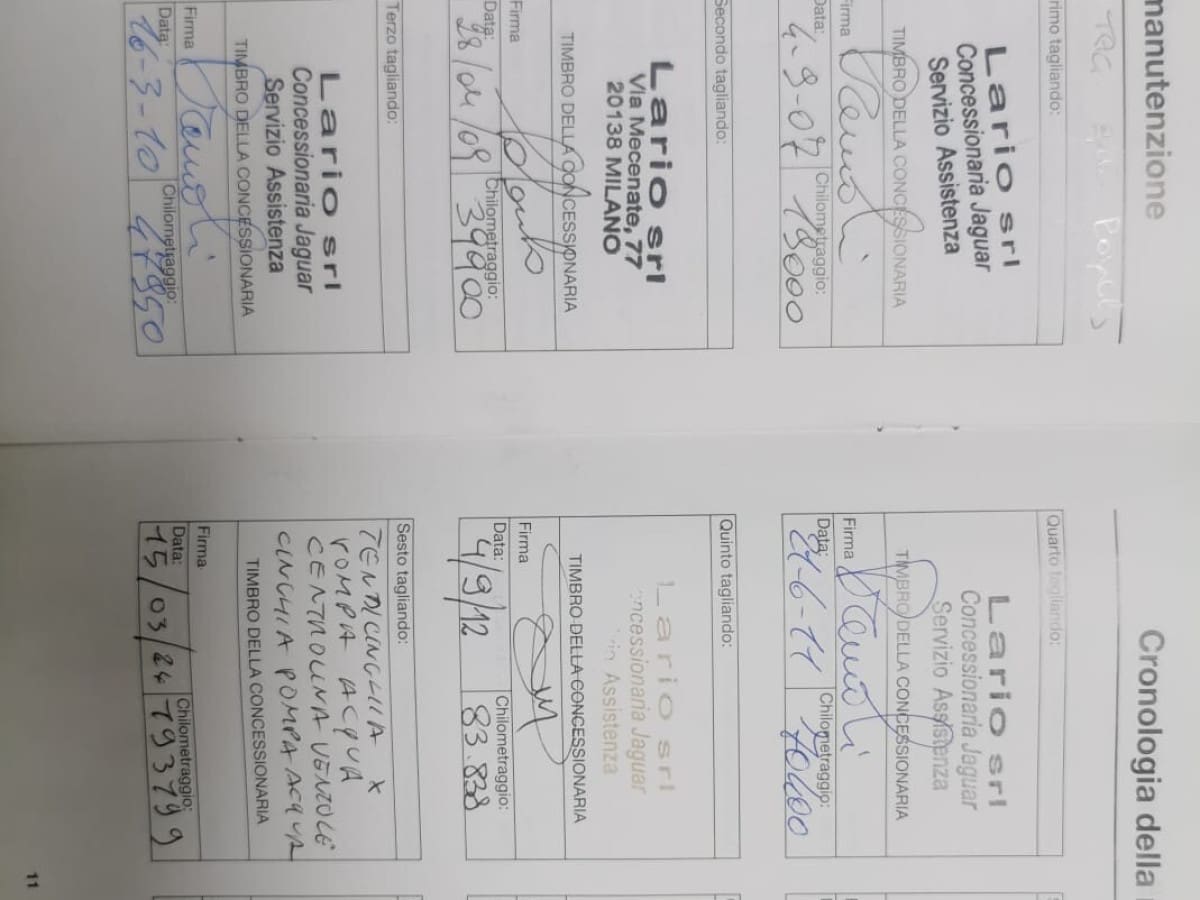 manutenzione
rimo tagliando:
Lario srl
Concessionaria Jaguar
Servizio Assistenza
TIMBRO DELLA CONCESSIONARIA
Firma
Data: Chilometraggio:
4-9-07 18000
Secondo tagliando:
Lario srl
Via Mecenate, 77
20138 MILANO
TIMBRO DELLA CONCESSIONARIA
Firma
Data: Chilometraggio:
28/04/09 39900
Terzo tagliando:
Lario srl
Concessionaria Jaguar
Servizio Assistenza
TIMBRO DELLA CONCESSIONARIA
Firma
Data: Chilometraggio:
16-3-10 47950
Cronologia della
Quarto tagliando:
Lario srl
Concessionaria Jaguar
Servizio Assistenza
TIMBRO DELLA CONCESSIONARIA
Firma
Data: Chilometraggio:
21-6-11 70400
Quinto tagliando:
Lario srl
ncessionaria Jaguar
Assistenza
TIMBRO DELLA CONCESSIONARIA
Firma
Data: Chilometraggio:
4/9/12 83.838
Sesto tagliando:
TENDICINGHIA X
POMPA ACQUA
CENTRALINA VENTOLE
CINGHIA POMPA ACQUA
TIMBRO DELLA CONCESSIONARIA
Firma
Data: Chilometraggio:
15/03/24 193799
11